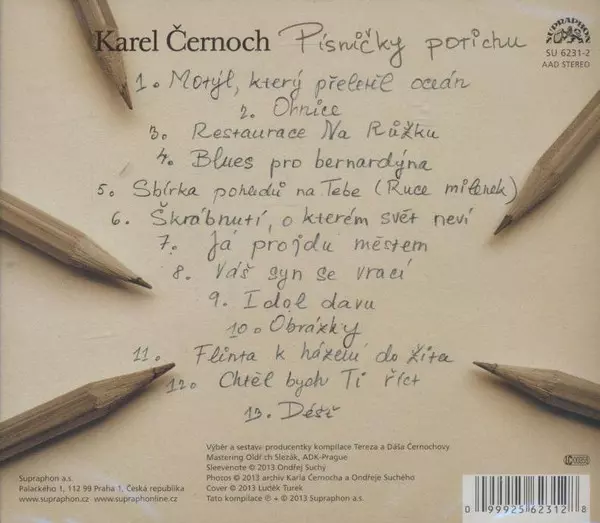 Karel Černoch Písničky potichu
SUPRAPHON
SU 6231-2
AAD STEREO
1. Motýl, který přeletěl oceán
2. Ohnice
3. Restaurace Na Růžku
4. Blues pro bernardýna
5. Sbírka pohledů na Tebe (Ruce milenek)
6. Škrábnutí, o kterém svět neví
7. Já projdu městem
8. Váš syn se vrací
9. Idol davu
10. Obrázky
11. Flinta k házení do žita
12. Chtěl bych Ti říct
13. Déšť
Výběr a sestavení producentky kompilace Tereza a Dáša Černochovy
Mastering Oldřich Slezák, ADK-Prague
Sleevenote © 2013 Ondřej Suchý
Photos © 2013 archiv Karla Černocha a Ondřeje Suchého
Cover © 2013 Luděk Turek
Tato kompilace ℗ + © 2013 Supraphon a.s.
Supraphon a.s.
Palackého 1, 112 99 Praha 1, Česká republika
www.supraphon.cz www.supraphonline.cz
0 99925 62312 8